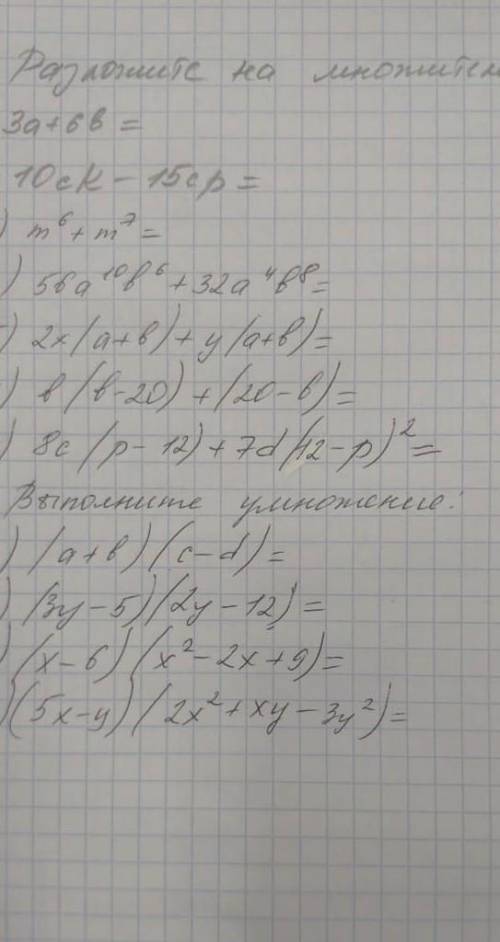 Разложите на множители
3a+6b=
10ck-15cp=
) m⁶+m⁷=
) 56a¹⁰b⁶+32a⁴b⁸=
) 2x(a+b)+y(a+b)=
) b(b-20)+(20-b)=
) 8c(p-12)+7d(12-p)²=
Выполните умножение:
) (a+b)(c-d)=
) (3y-5)(2y-12)=
) (x-6)(x²-2x+9)=
) (5x-y)(2x²+xy-3y²)=